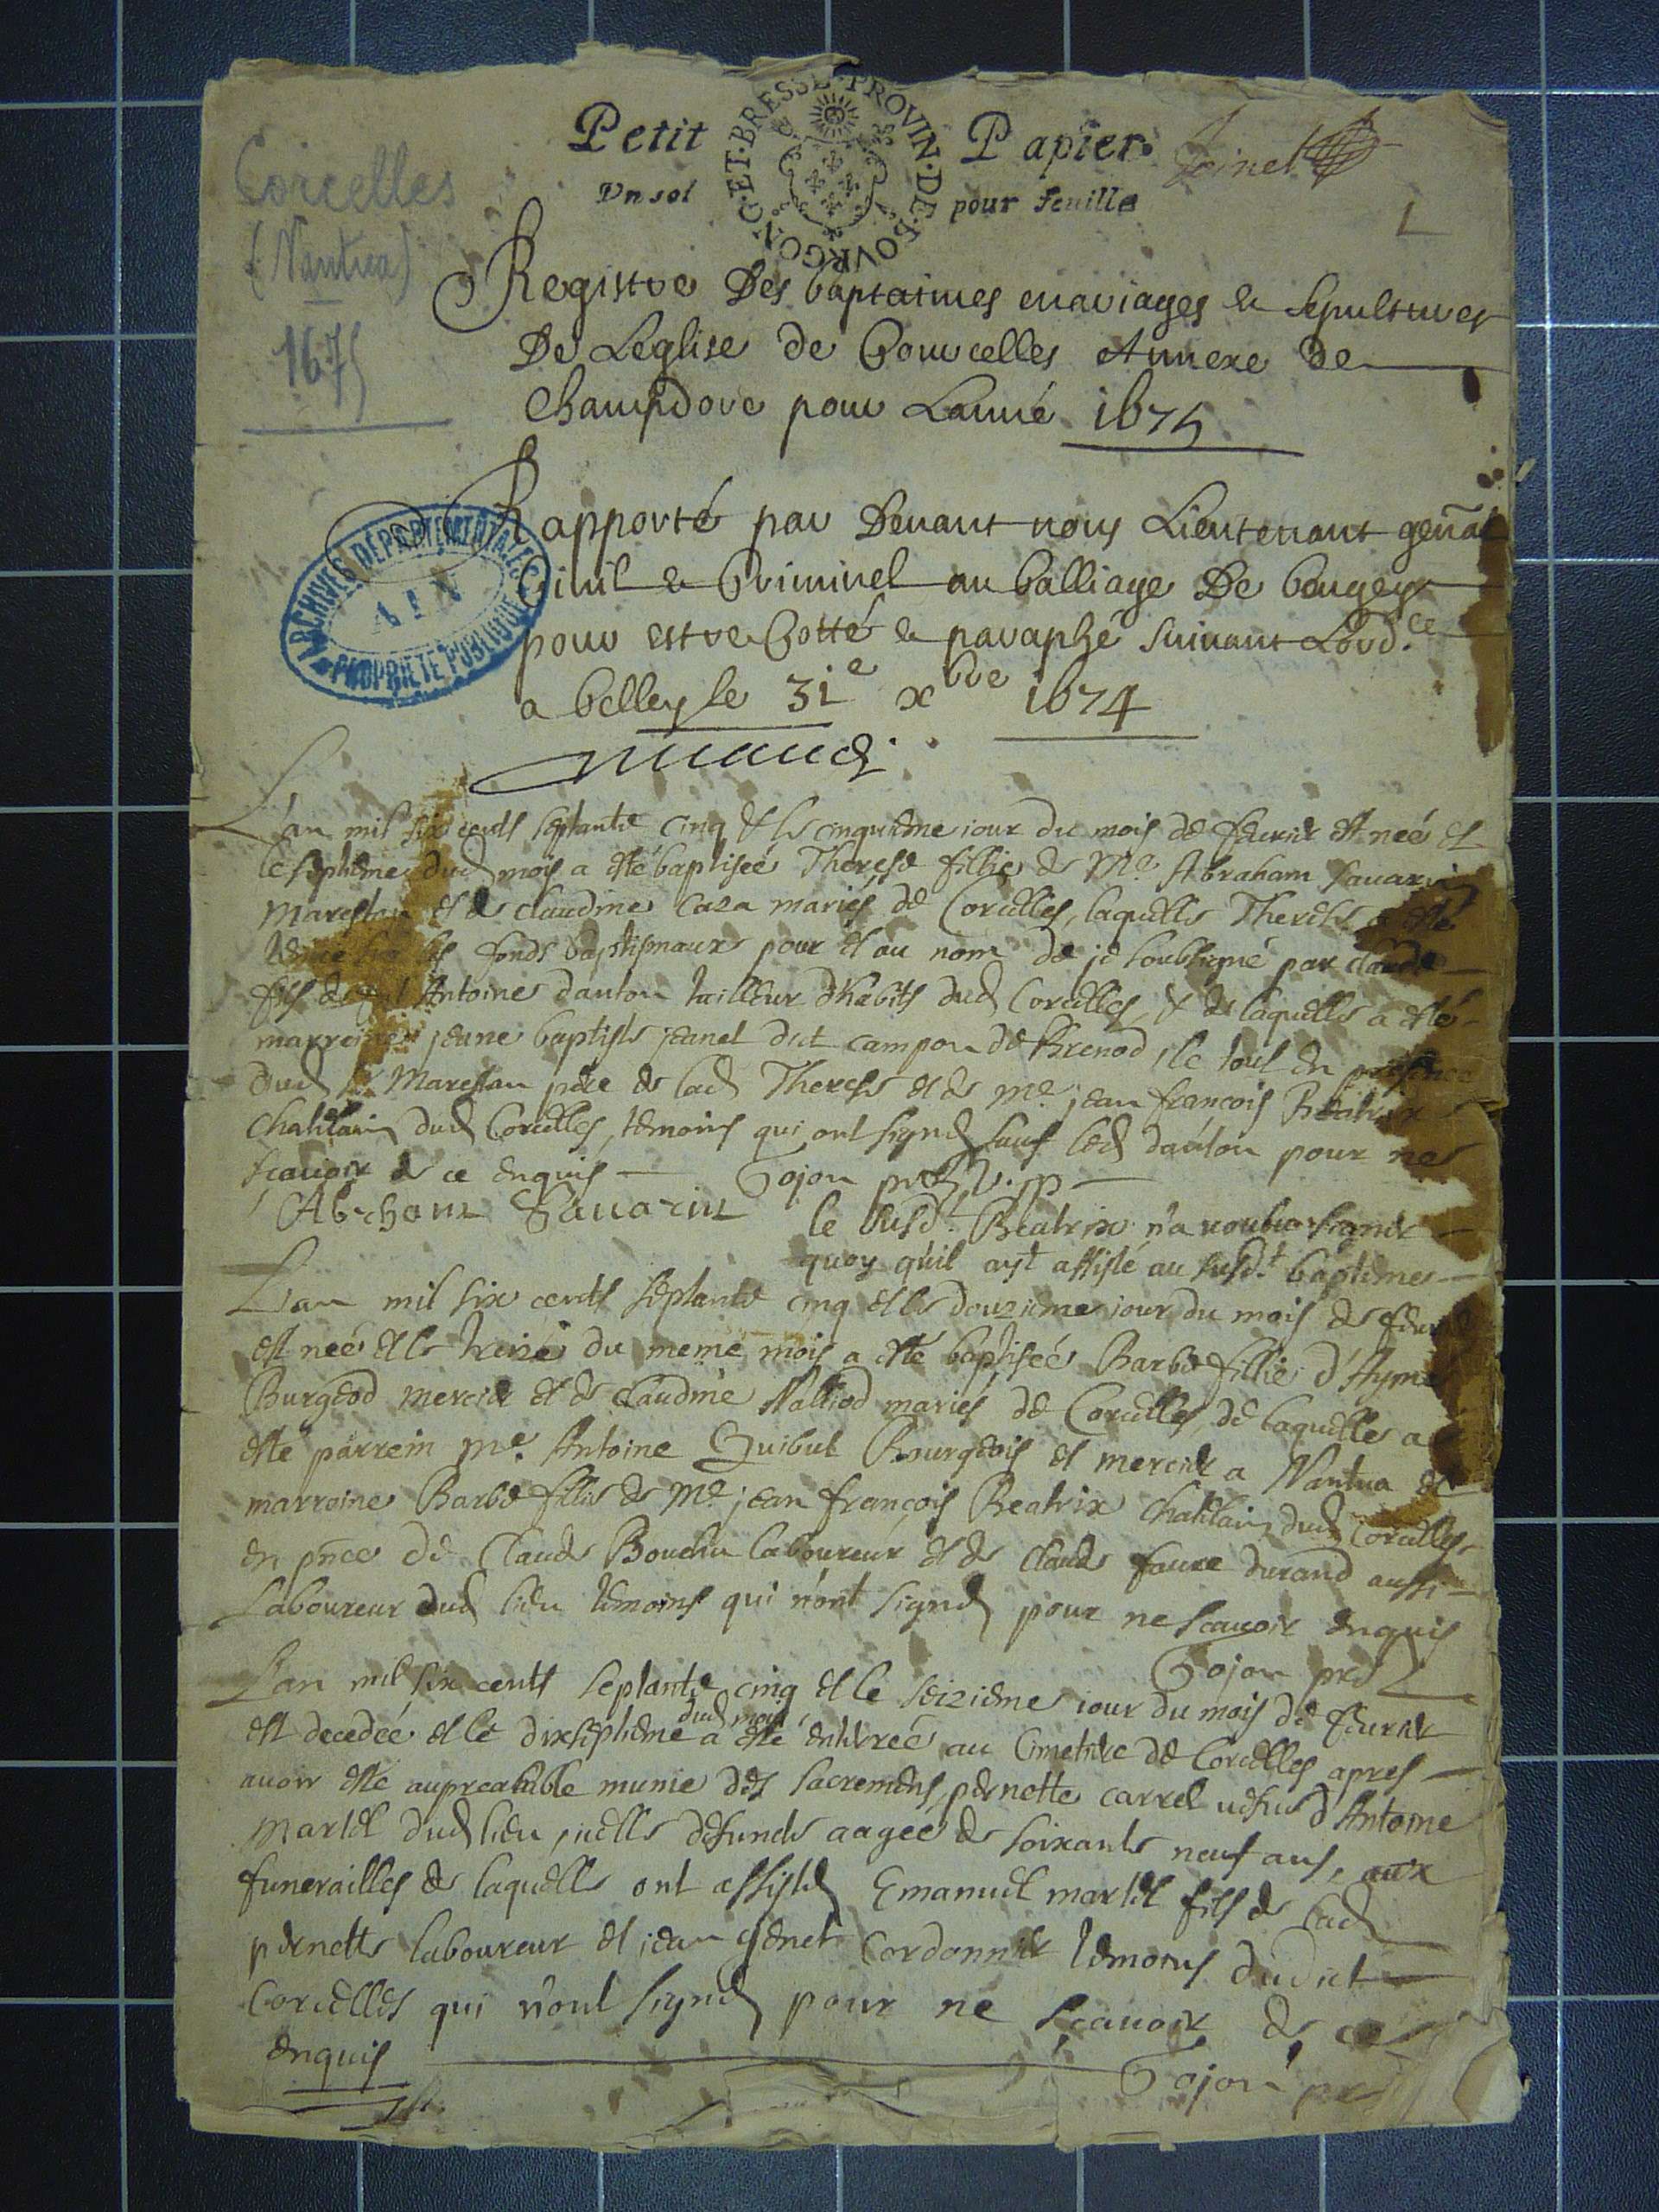 Petit Papier Joinet
Un sol pour feuille
PROVIN. DE. BOVRGONG. ET. BRESSE
1
Corcelles
(Nantua)
1675
Registre Des baptatmes mariages et Sepultures
De Leglise de Courcelles Annexe de
Champdore pour Lanné 1675
Rapporté par Devant nous Lieutenant gen̄al
Civil et Criminel au balliage De bougey
pour estre Cotté et paraphé suivant Lord.ce
a belley le 31e xbre 1674
ARCHIVES DÉPARTEMENTALES
AIN
PROPRIÉTÉ PUBLIQUE
L'an mil six cents septante cinq & le cinquieme iour du mois de feurier est neé et
le septieme dud mois a esté baptiseé Therese fillie de Me Abraham Sauarin
Mareschau et de claudine Caza mariés de Corcelles, laquelle Therese a esté
les fonds baptismaux pour et au nom de je soubsigné par claude
fils de Antoine danton tailleur d'habits dud Corcelles, & de laquelle a esté
marroine jeane baptiste jeanet dit campon de Brenod, le tout en presence
dud Sr Mareschau pere de lad Therese et de Me jean françois Beatrix
Chatelain dud Corcelles, temoins qui ont signé sauf led danton pour ne
scauoir de ce enquis Gojon
Abraham Sauarin le susd.t Beatrix n'a voulu signer
quoy qu'il ayt assisté au susd.t bapteme
L'an mil six cents septante cinq et le douzieme iour du mois de feurier
est neé et le treize du meme mois a esté baptiseé Barbe fillie d'Ayme
Burgeod mercier et de claudine Nalliod mariés de Corcelles, de laquelle a
esté parrein Me Antoine Guibut Bourgeois et mercier a Nantua et
marroine Barbe fillie de Me jean françois Beatrix Chatelain dud Corcelles
en pn̄ce de Claude Bouchu laboureur et de Claude faure durand aussi
Laboureur dud lieu temoins qui n'ont signé pour ne scauoir enquis
Gojon
L'an mil six cents septante cinq et le seizieme iour du mois de feurier
est decedeé et le dixseptieme dud mois a esté enterreé au Cimetiere de Corcelles apres
auoir esté aupreallable munie des sacremens, pernette carrel uefue d'Antoine
Martel dud lieu, icelle defuncte aageé de soixante neuf ans, aux
funerailles de laquelle ont assisté Emanuel martel fils de lad
pernette laboureur et jean genet Cordonnier temoins dudict
Corcelles qui n'ont signé pour ne scauoir de ce
enquis Gojon